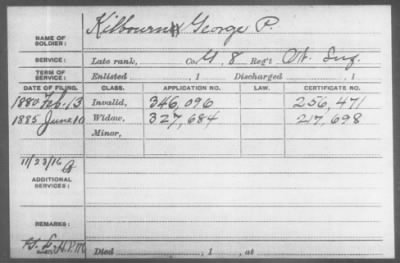 NAME OF SOLDIER: Kilbourn George P.
SERVICE: Late rank, Co. G, 8 Reg't Ct. Inf.
TERM OF SERVICE: Enlisted , 1 Discharged , 1
DATE OF FILING. CLASS. APPLICATION NO. LAW. CERTIFICATE NO.
1880 Feb. 13 Invalid, 346,096 256,471
1885 June 10 Widow, 327,684 217,698
Minor,
11/23/16
ADDITIONAL SERVICES:
REMARKS:
Died , 1 , at